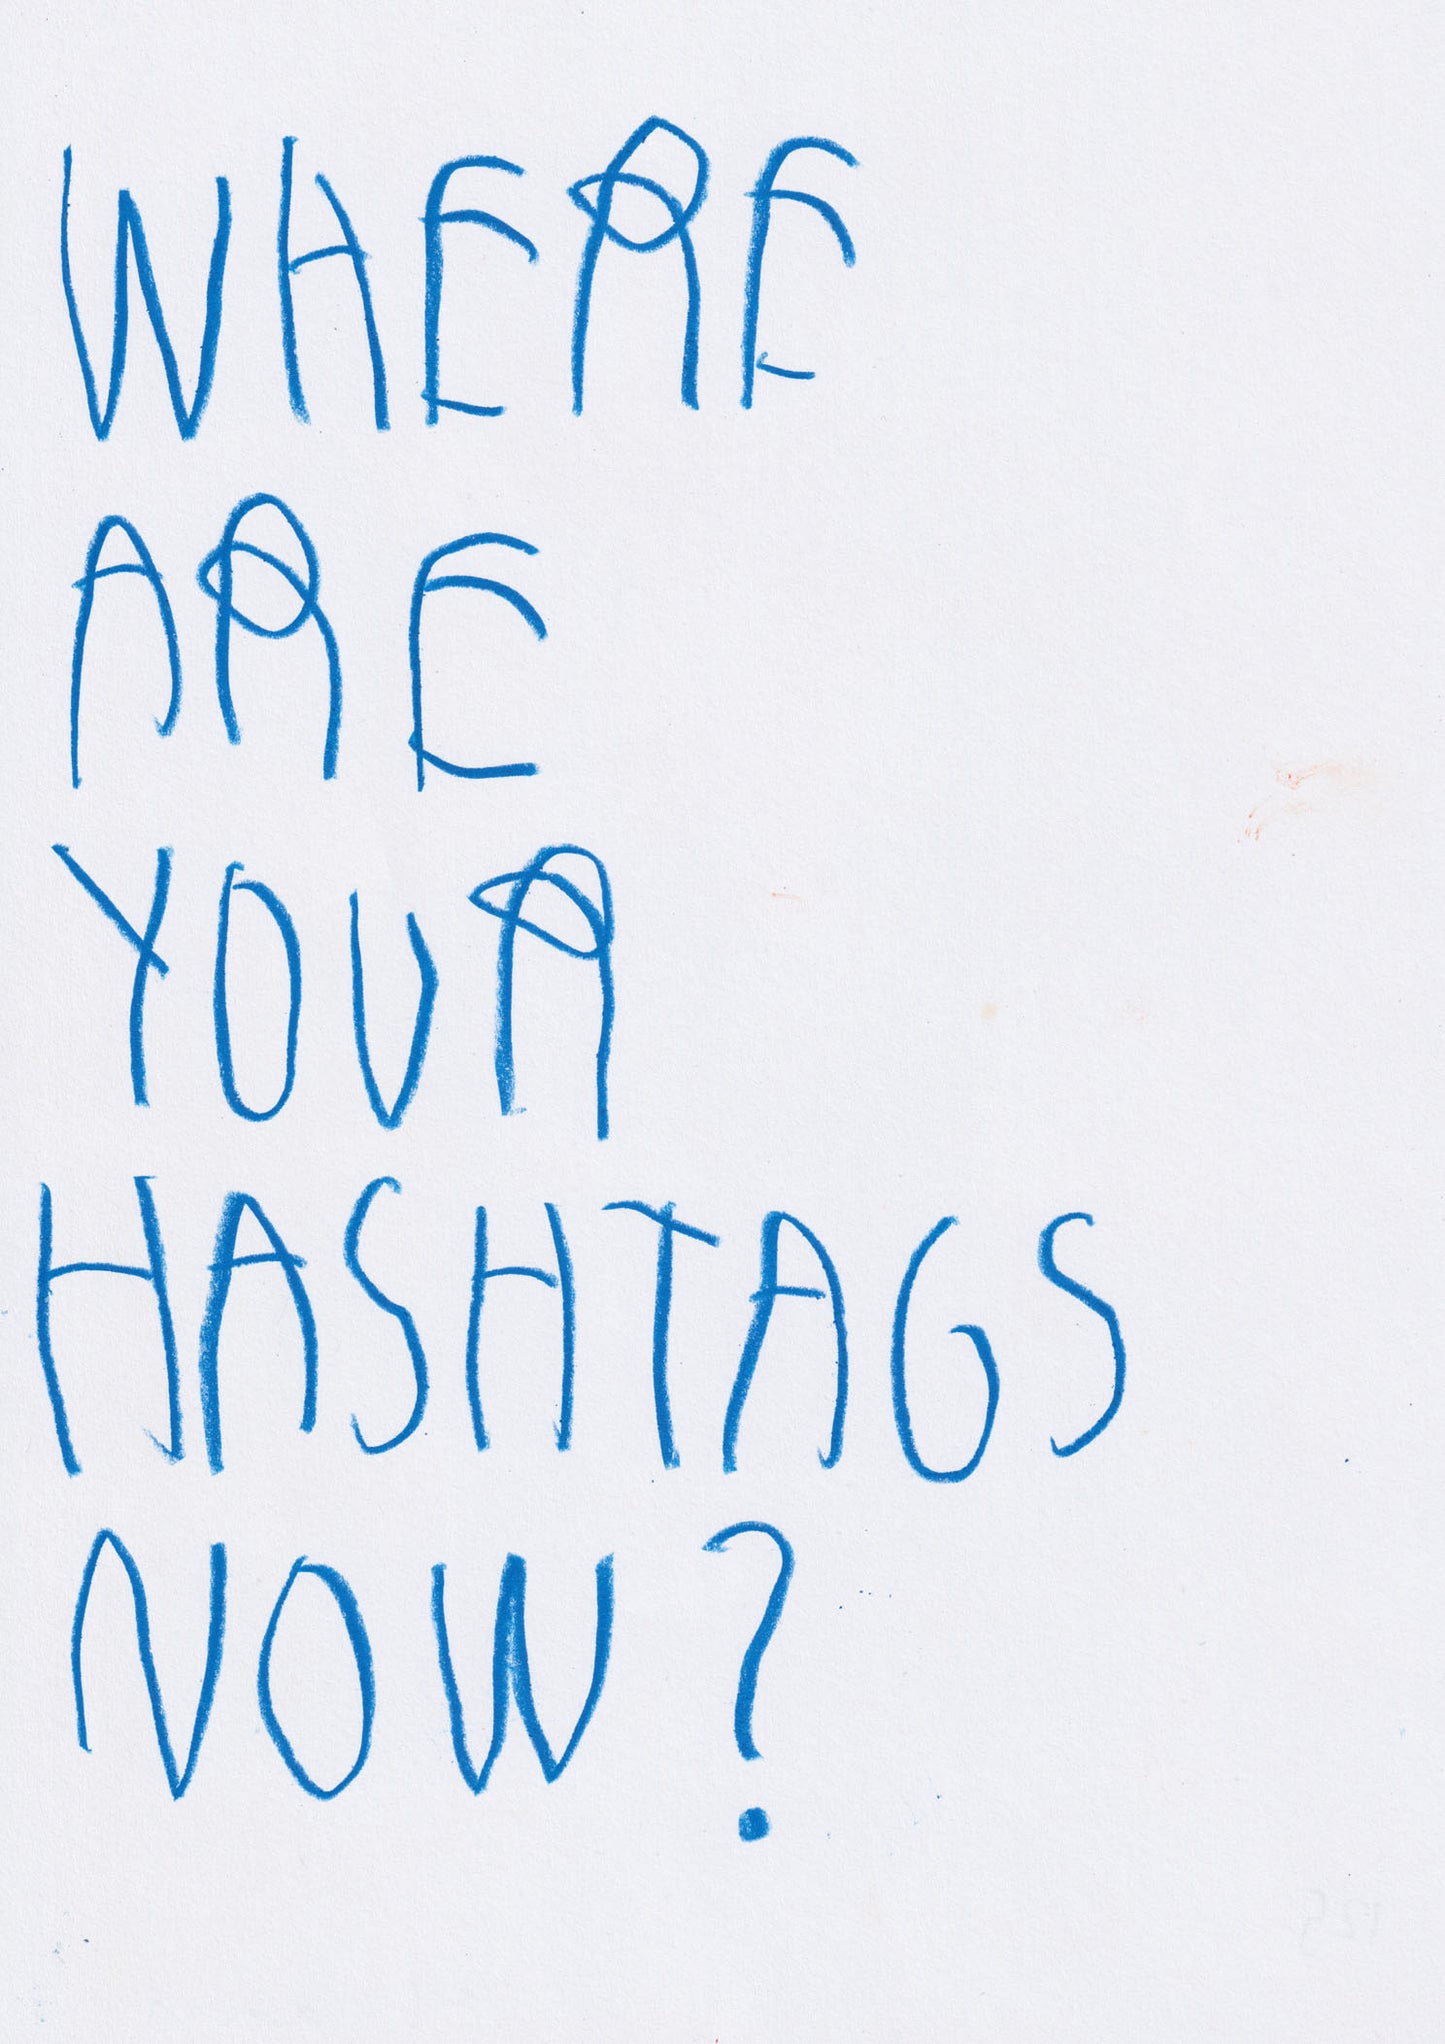 WHERE
ARE
YOUR
HASHTAGS
NOW?